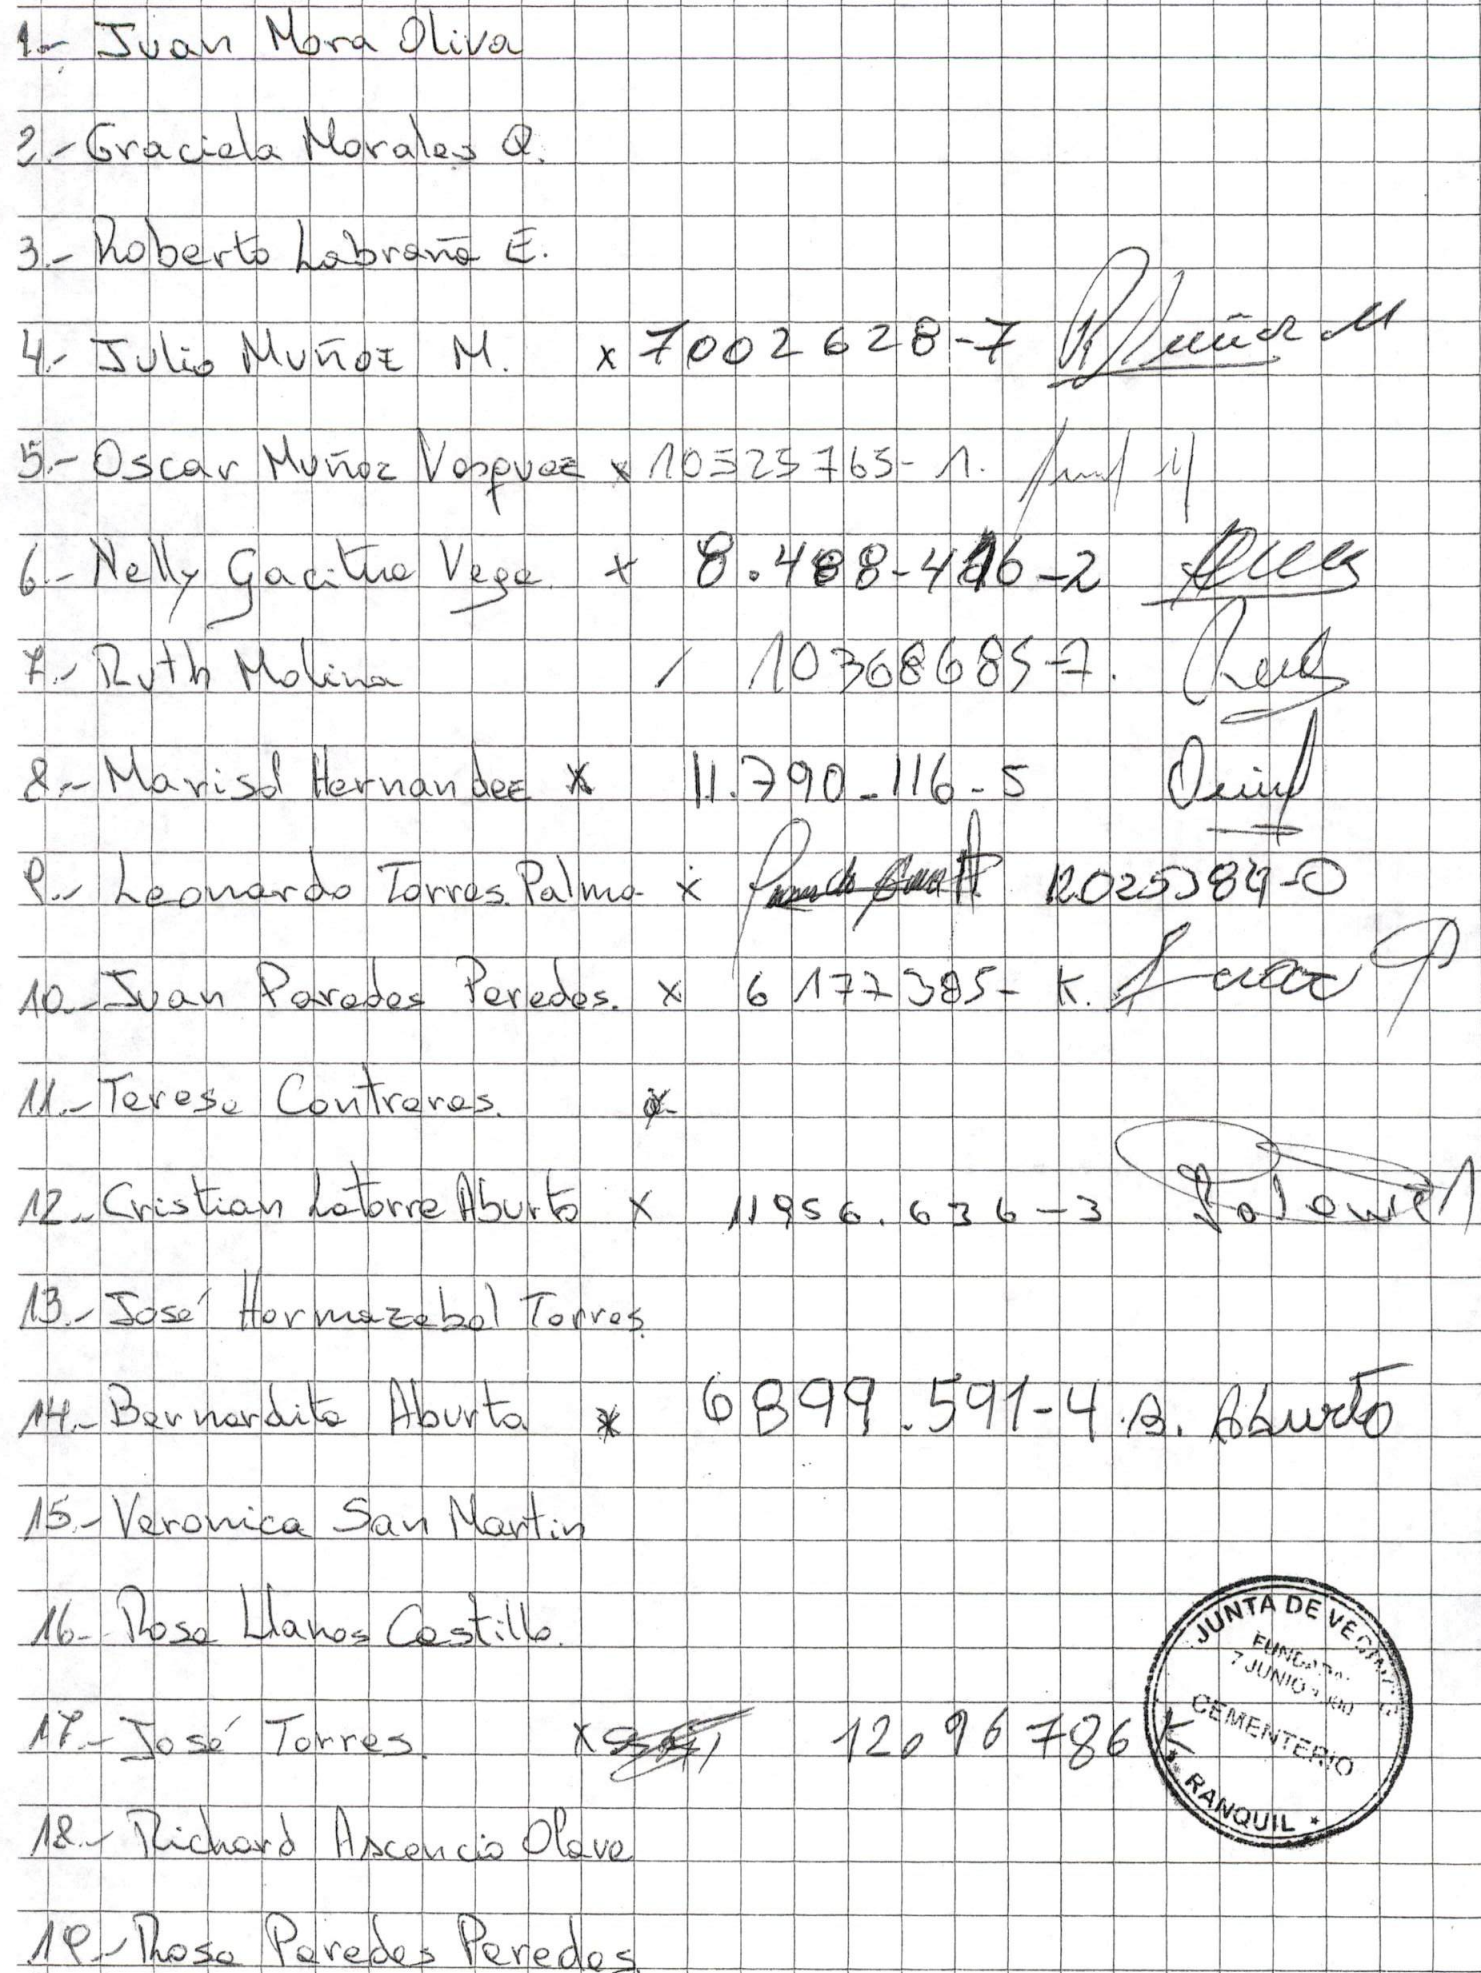 1.- Juan Mora Oliva
2.- Graciela Morales Q.
3.- Roberto Labraña E.
4.- Julio Muñoz M. x 7002628-7
5.- Oscar Muñoz Vasquez x 10525765-1.
6.- Nelly Gacitua Vega x 8.488-416-2
7.- Ruth Molina / 10368685-7.
8.- Marisol Hernandez x 11.790-116-5
9.- Leonardo Torres Palma x 12025384-0
10.- Juan Paredes Paredes. x 6177385-K.
11.- Teresa Contreras. x
12.- Cristian Latorre Aburto x 11956.636-3
13.- José Hormazabal Torres
14.- Bernardita Aburto x 6899.591-4 B. Aburto
15.- Veronica San Martin
16.- Rosa Llanos Castillo.
17.- José Torres. x 12096786 K
JUNTA DE
7 JUNIO
CEMENTERIO
* RANQUIL *
18.- Richard Ascencio Olave
19.- Rosa Paredes Paredes